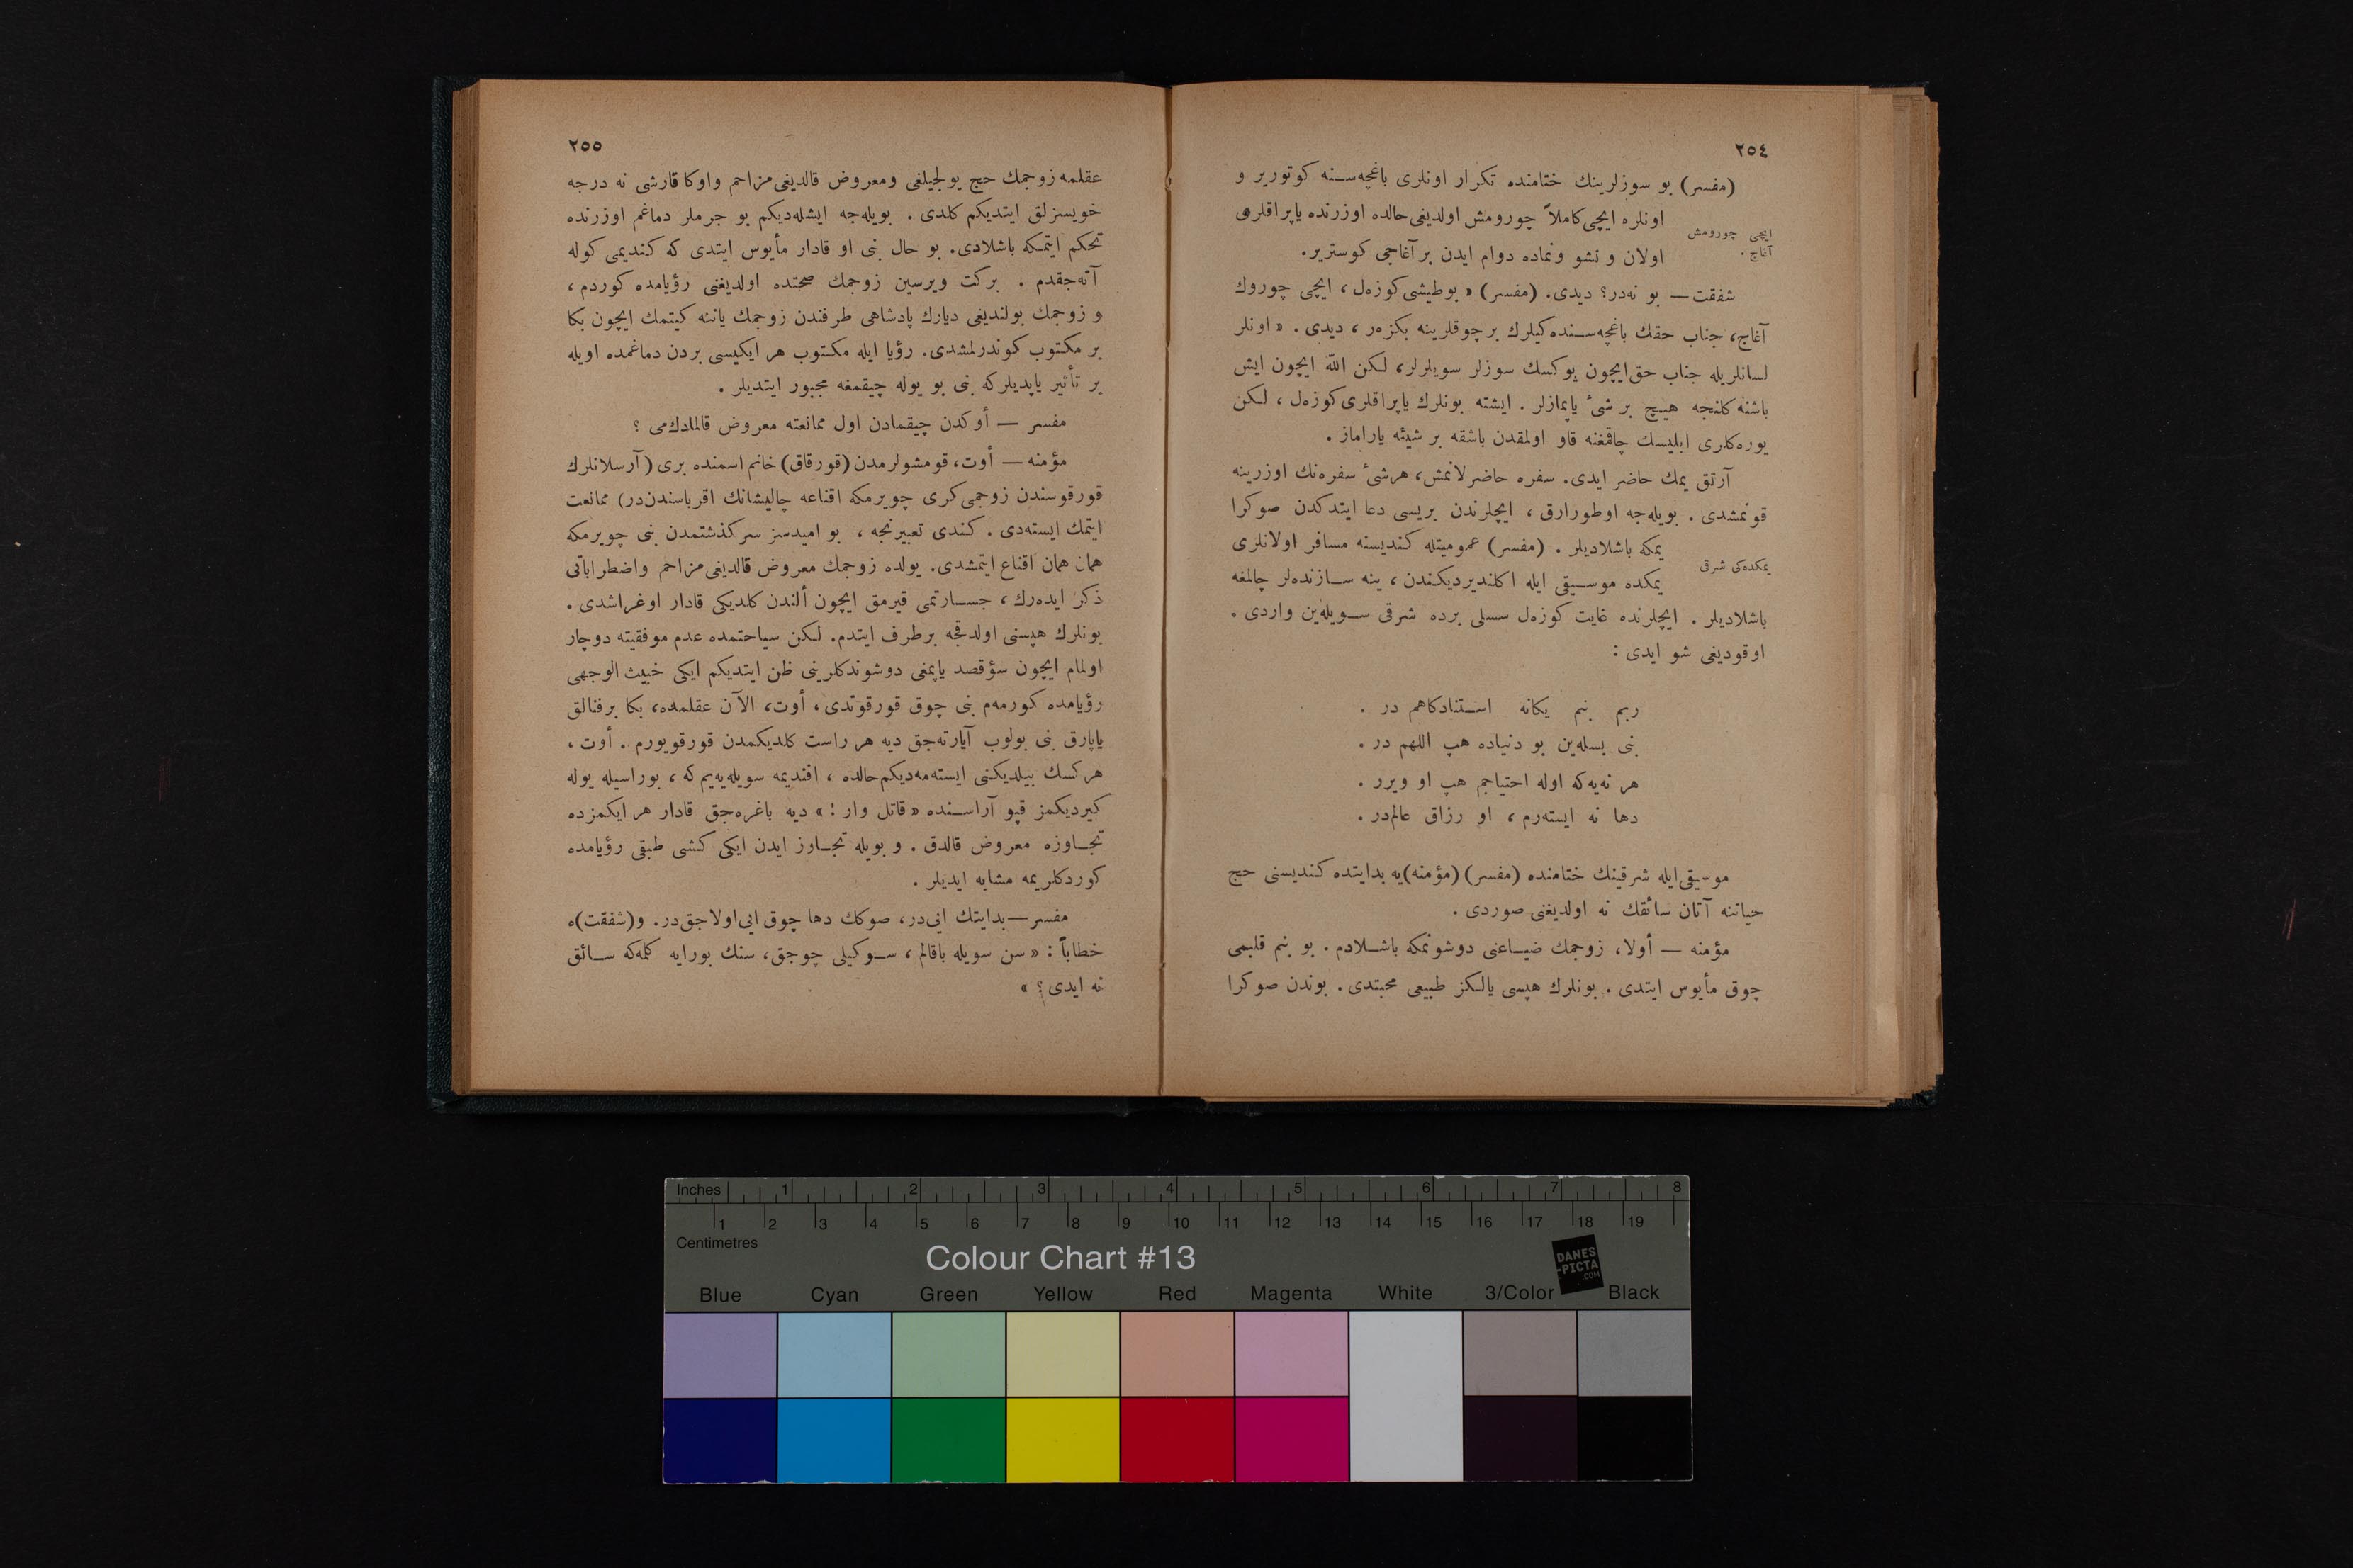 ٢٥٤
(مفسر) بو سوزلرينك ختامنده تكرار اونلرى باغچه‌سنه كوتورير و
اونلره ايچى كاملاً چورومش اولديغى حالده اوزرنده ياپراقلرى
ايچى چورومش
آغاج .
اولان و نشو ونماده دوام ايدن بر آغاجى كوستربر.
شفقت — بو نه‌در؟ ديدى. (مفسر) « بوطيشى كوزه‌ل ، ايچى چوروك
آغاج، جناب حقك باغچه‌سنده كيلرك بر چوقلرينه بكزه‌ر ، ديدى . « اونلر
لسانلريله جناب حق ايچون يوكسك سوزلر سويلرلر، لكن الله ايچون ايش
باشنه كلنجه هيچ بر شئ ياپمازلر . ايشته بونلرك ياپراقلرى كوزه‌ل ، لكن
يوره‌كلرى ابليسك چاقمغنه قاو اولمقدن باشقه بر شيئه ياراماز .
آرتق يمك حاضر ايدى. سفره حاضرلانمش، هرشئ سفره‌نك اوزرينه
قونمشدى . بويله‌جه اوطورارق ، ايچلرندن بريسى دعا ايتدكدن صوكرا
يمكه باشلاديلر . (مفسر) عموميتله كنديسنه مسافر اولانلرى
يمكده‌كى شرقى
يمكده موسيقى ايله اكلنديرديكندن ، ينه سازنده‌لر چالمغه
باشلاديلر . ايچلرنده غايت كوزه‌ل سسلى برده شرقى سويله‌ين واردى .
اوقوديغى شو ايدى :
ربم بنم يكانه استنادكاهم در .
بنى بسله‌ين بو دنياده هپ اللهم در .
هر نه‌يه‌كه اوله احتياجم هپ او ويرر .
دها نه ايسته‌رم ، او رزاق عالمدر .
موسيقى ايله شرقينك ختامنده (مفسر) (مؤمنه)يه بدايتده كنديسنى حج
حياتنه آتان سائقك نه اولديغنى صوردى .
مؤمنه — أولا، زوجمك ضياعنى دوشونمكه باشلادم . بو بنم قلبمى
چوق مأيوس ايتدى . بونلرك هپسى يالكز طبيعى محبتدى . بوندن صوكرا
٢٥٥
عقلمه زوجمك حج يولجيلغى ومعروض قالديغى مزاحم واوكا قارشى نه درجه
خويسزلق ايتديكم كلدى . بويله‌جه ايشله‌ديكم بو جرملر دماغم اوزرنده
تحكم ايتمكه باشلادى. بو حال بنى او قادار مأيوس ايتدى كه كنديمى كوله
آته‌جقدم . بركت ويرسين زوجمك صحتده اولديغنى رؤيامده كوردم ،
و زوجمك بولنديغى ديارك پادشاهى طرفندن زوجمك ياننه كيتمك ايچون بكا
بر مكتوب كوندرلمشدى. رؤيا ايله مكتوب هر ايكيسى بردن دماغمده اويله
بر تأثير ياپديلركه بنى بو يوله چيقمغه مجبور ايتديلر .
مفسر — أوكدن چيقمادن اول ممانعته معروض قالمادك‌مى ؟
مؤمنه — أوت، قومشولرمدن (قورقاق) خانم اسمنده برى (آرسلانلرك
قورقوسندن زوجمى كرى چويرمكه اقناعه چاليشانك اقرباسندن‌در) ممانعت
ايتمك ايسته‌دى . كندى تعبيرنجه ، بو اميدسز سركذشتمدن بنى چويرمكه
همان همان اقناع ايتمشدى. يولده زوجمك معروض قالديغى مزاحم واضطراباتى
ذكر ايده‌رك ، جسارتمى قيرمق ايچون ألندن كلديكى قادار اوغراشدى .
بونلرك هپسنى اولدقجه برطرف ايتدم. لكن سياحتمده عدم موفقيته دوچار
اولمام ايچون سؤقصد ياپمغى دوشوندكلرينى ظن ايتديكم ايكى خبيث الوجهى
رؤيامده كورمه‌م بنى چوق قورقوتدى ، أوت، الآن عقلمده، بكا برفنالق
ياپارق بنى بولوب آيارته‌جق ديه هر راست كلديكمدن قورقويورم . أوت ،
هركسك بيلديكنى ايسته‌مه‌ديكم حالده ، افنديمه سويله‌يه‌يم كه ، بوراسيله يوله
كيرديكمز قپو آراسنده « قاتل وار ! » ديه باغره‌جق قادار هر ايكمزده
تجاوزه معروض قالدق . و بويله تجاوز ايدن ايكى كشى طبقى رؤيامده
كوردكلريمه مشابه ايديلر .
مفسر — بدايتك ايى‌در، صوكك دها چوق ايى اولاجق‌در. و(شفقت)ه
خطاباً : « سن سويله باقالم ، سوكيلى چوجق، سنك بورايه كلمه‌كه سائق
نه ايدى ؟ »
Inches 1 2 3 4 5 6 7 8
1 2 3 4 5 6 7 8 9 10 11 12 13 14 15 16 17 18 19
Centimetres
Colour Chart #13
DANES
-PICTA
.COM
Blue Cyan Green Yellow Red Magenta White 3/Color Black